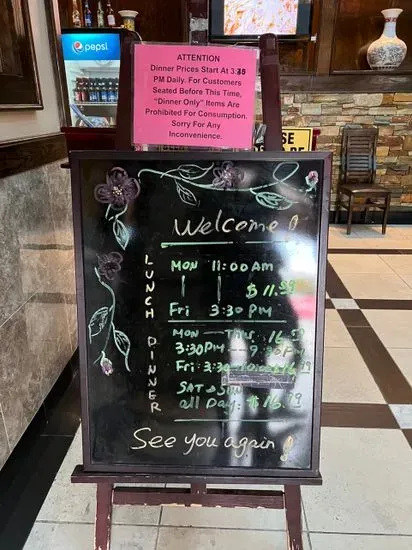 pepsi
ATTENTION
Dinner Prices Start At 3:30
PM Daily. For Customers
Seated Before This Time,
"Dinner Only" Items Are
Prohibited For Consumption.
Sorry For Any
Inconvenience.
Welcome!
LUNCH
Mon 11:00 Am
Fri 3:30 PM
DINNER
Mon
3:30PM -- 9:30PM
Fri
SAT & SUN
all Day:
See you again!